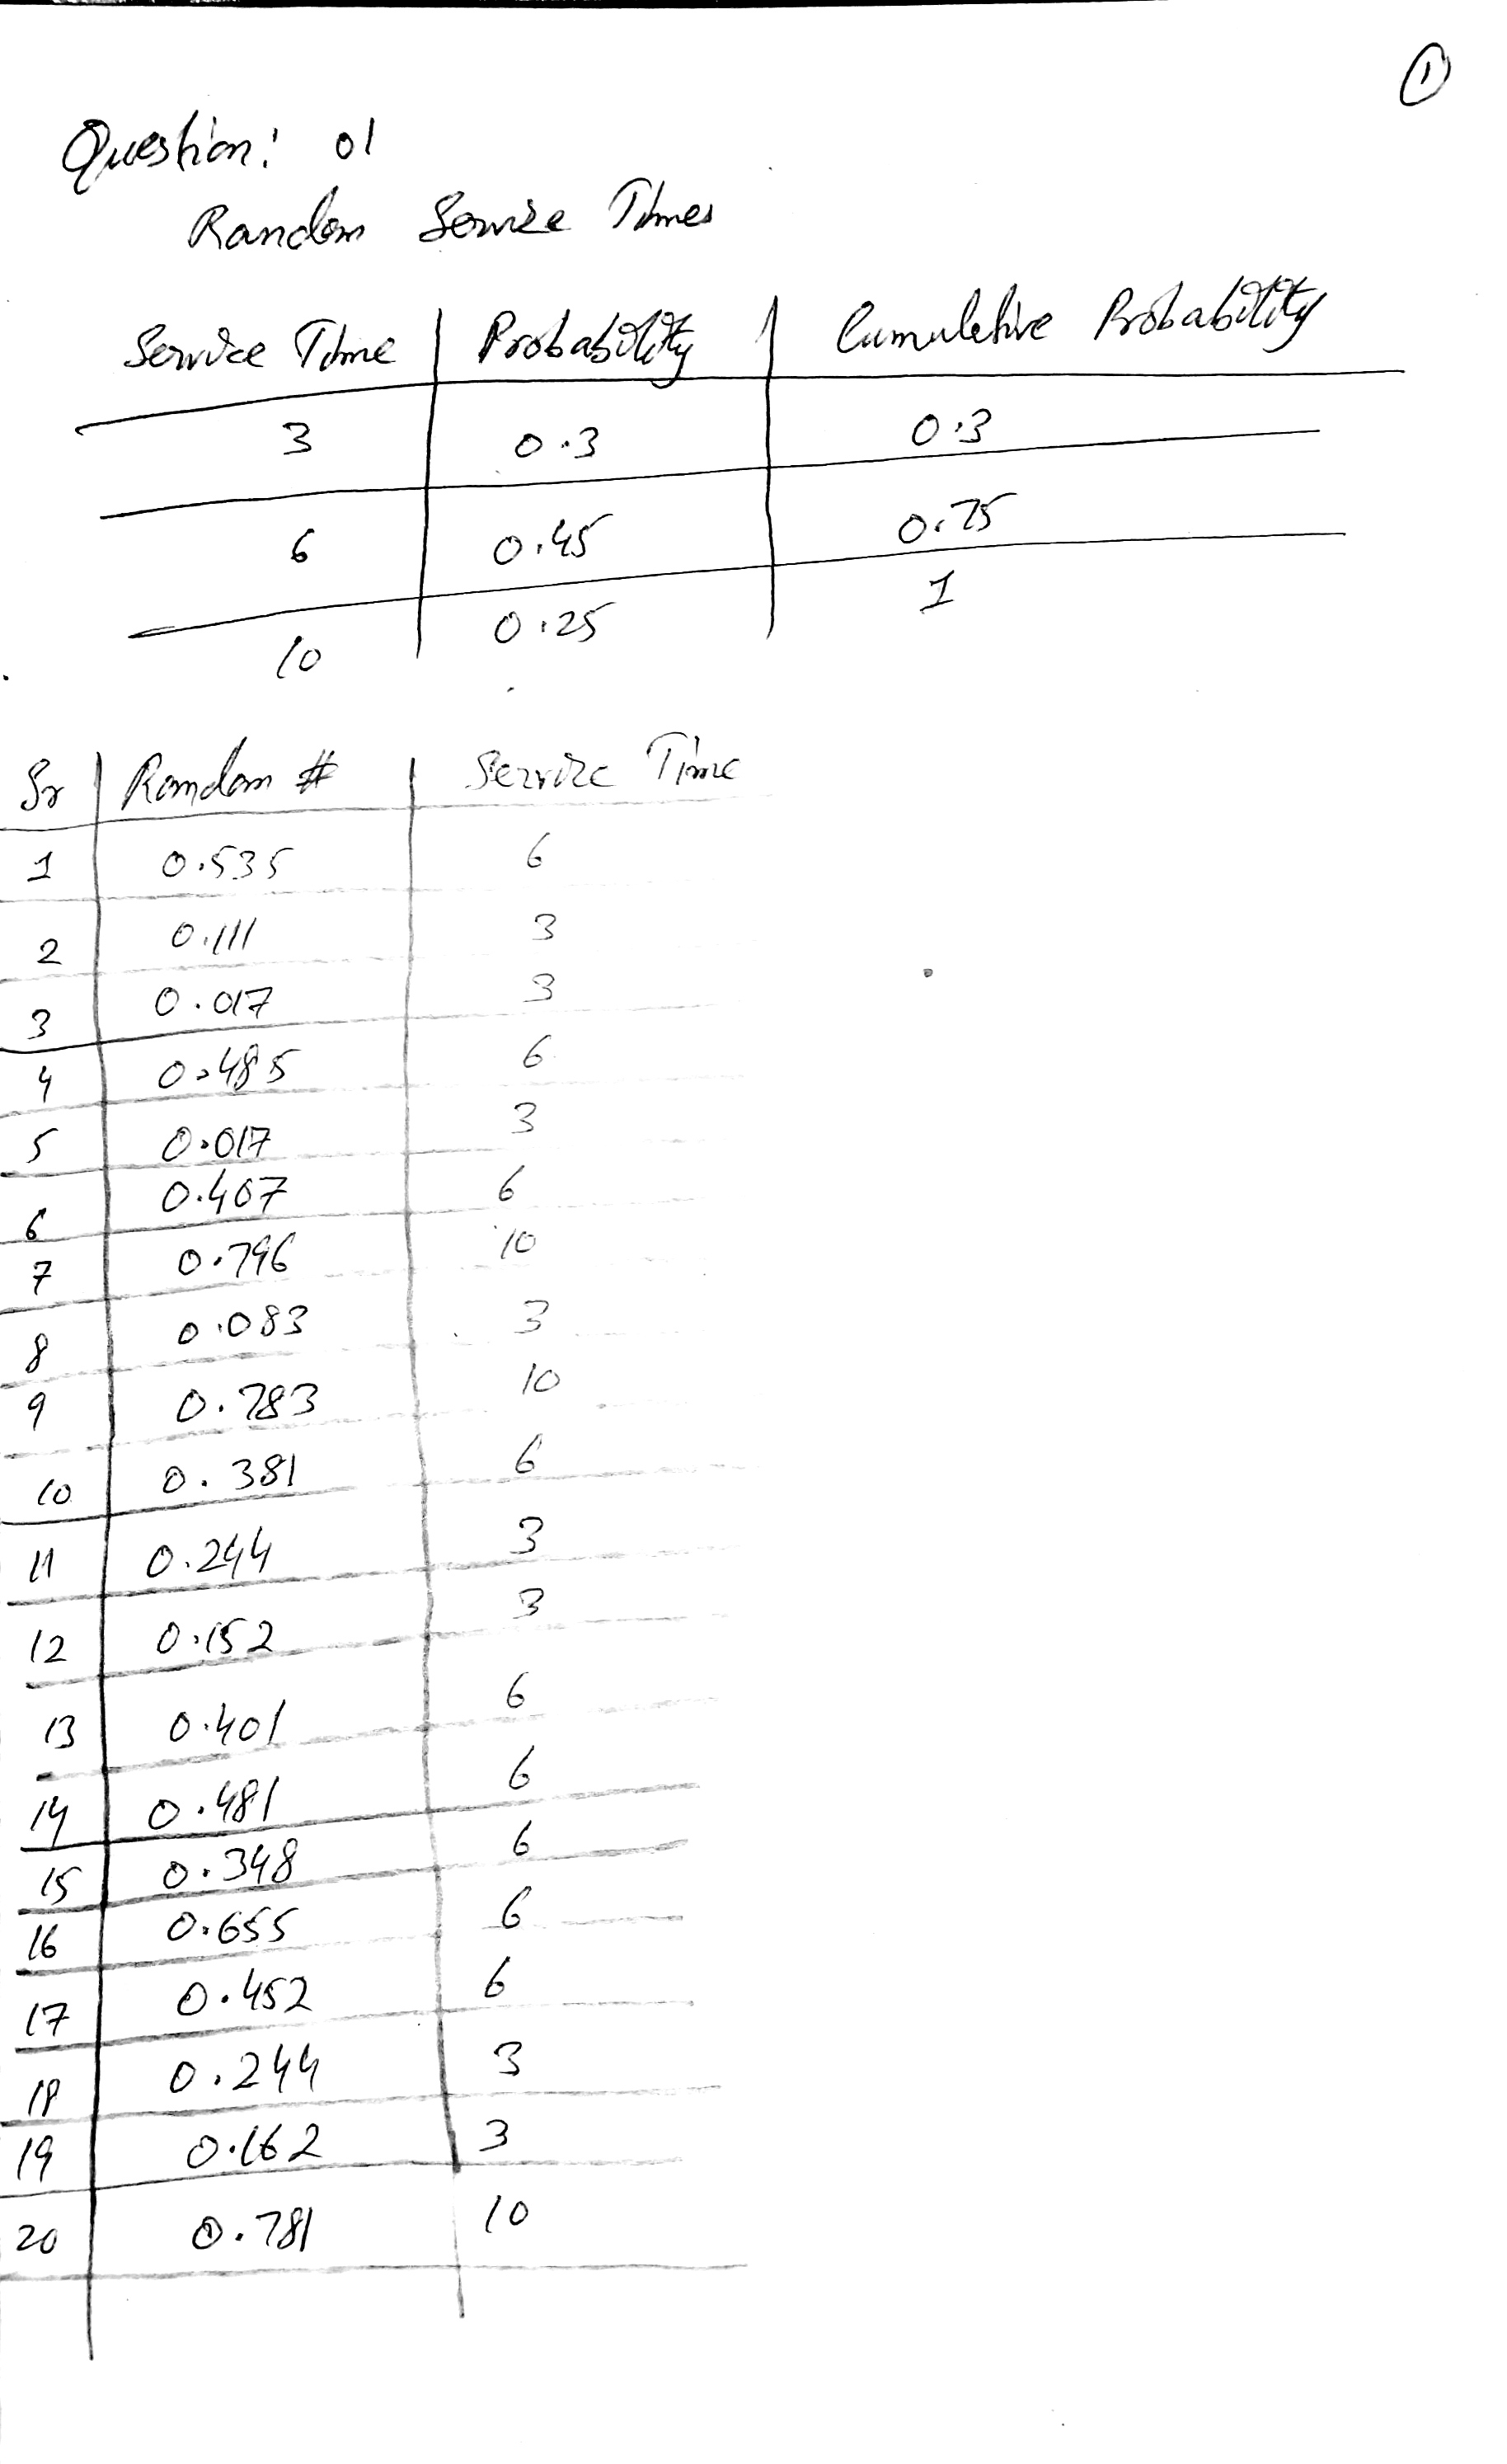 1
Question: 01
Random Service Times
Service Time | Probability | Cumulative Probability
3 | 0.3 | 0.3
6 | 0.45 | 0.75
10 | 0.25 | 1
Sr | Random # | Service Time
1 | 0.535 | 6
2 | 0.111 | 3
3 | 0.017 | 3
4 | 0.485 | 6
5 | 0.017 | 3
6 | 0.407 | 6
7 | 0.796 | 10
8 | 0.083 | 3
9 | 0.783 | 10
10 | 0.381 | 6
11 | 0.244 | 3
12 | 0.152 | 3
13 | 0.401 | 6
14 | 0.481 | 6
15 | 0.348 | 6
16 | 0.655 | 6
17 | 0.452 | 6
18 | 0.244 | 3
19 | 0.162 | 3
20 | 0.781 | 10